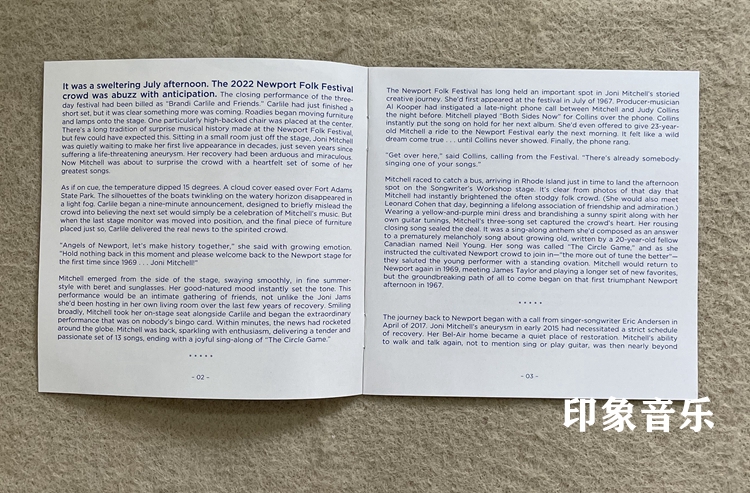 It was a sweltering July afternoon. The 2022 Newport Folk Festival
crowd was abuzz with anticipation. The closing performance of the three-
day festival had been billed as “Brandi Carlile and Friends.” Carlile had just finished a
short set, but it was clear something more was coming. Roadies began moving furniture
and lamps onto the stage. One particularly high-backed chair was placed at the center.
There’s a long tradition of surprise musical history made at the Newport Folk Festival,
but few could have expected this. Sitting in a small room just off the stage, Joni Mitchell
was quietly waiting to make her first live appearance in decades, just seven years since
suffering a life-threatening aneurysm. Her recovery had been arduous and miraculous.
Now Mitchell was about to surprise the crowd with a heartfelt set of some of her
greatest songs.
As if on cue, the temperature dipped 15 degrees. A cloud cover eased over Fort Adams
State Park. The silhouettes of the boats twinkling on the watery horizon disappeared in
a light fog. Carlile began a nine-minute announcement, designed to briefly mislead the
crowd into believing the next set would simply be a celebration of Mitchell’s music. But
when the last stage monitor was moved into position, and the final piece of furniture
placed just so, Carlile delivered the real news to the spirited crowd.
“Angels of Newport, let’s make history together,” she said with growing emotion.
“Hold nothing back in this moment and please welcome back to the Newport stage for
the first time since 1969 . . . Joni Mitchell!”
Mitchell emerged from the side of the stage, swaying smoothly, in fine summer-
style with beret and sunglasses. Her good-natured mood instantly set the tone. This
performance would be an intimate gathering of friends, not unlike the Joni Jams
she’d been hosting in her own living room over the last few years of recovery. Smiling
broadly, Mitchell took her on-stage seat alongside Carlile and began the extraordinary
performance that was on nobody’s bingo card. Within minutes, the news had rocketed
around the globe. Mitchell was back, sparkling with enthusiasm, delivering a tender and
passionate set of 13 songs, ending with a joyful sing-along of “The Circle Game.”
• • • • •
– 02 –
The Newport Folk Festival has long held an important spot in Joni Mitchell’s storied
creative journey. She’d first appeared at the festival in July of 1967. Producer-musician
Al Kooper had instigated a late-night phone call between Mitchell and Judy Collins
the night before. Mitchell played “Both Sides Now” for Collins over the phone. Collins
instantly put the song on hold for her next album. She’d even offered to give 23-year-
old Mitchell a ride to the Newport Festival early the next morning. It felt like a wild
dream come true . . . until Collins never showed. Finally, the phone rang.
“Get over here,” said Collins, calling from the Festival. “There’s already somebody
singing one of your songs.”
Mitchell raced to catch a bus, arriving in Rhode Island just in time to land the afternoon
spot on the Songwriter’s Workshop stage. It’s clear from photos of that day that
Mitchell had instantly brightened the often stodgy folk crowd. (She would also meet
Leonard Cohen that day, beginning a lifelong association of friendship and admiration.)
Wearing a yellow-and-purple mini dress and brandishing a sunny spirit along with her
own guitar tunings, Mitchell’s three-song set captured the crowd’s heart. Her rousing
closing song sealed the deal. It was a sing-along anthem she’d composed as an answer
to a prematurely melancholy song about growing old, written by a 20-year-old fellow
Canadian named Neil Young. Her song was called “The Circle Game,” and as she
instructed the cultivated Newport crowd to join in—“the more out of tune the better”—
they saluted the young performer with a standing ovation. Mitchell would return to
Newport again in 1969, meeting James Taylor and playing a longer set of new favorites,
but the groundbreaking path of all to come began on that first triumphant Newport
afternoon in 1967.
• • • • •
The journey back to Newport began with a call from singer-songwriter Eric Andersen in
April of 2017. Joni Mitchell’s aneurysm in early 2015 had necessitated a strict schedule
of recovery. Her Bel-Air home became a quiet place of restoration. Mitchell’s ability
to walk and talk again, not to mention sing or play guitar, was then nearly beyond
– 03 –
印象音乐